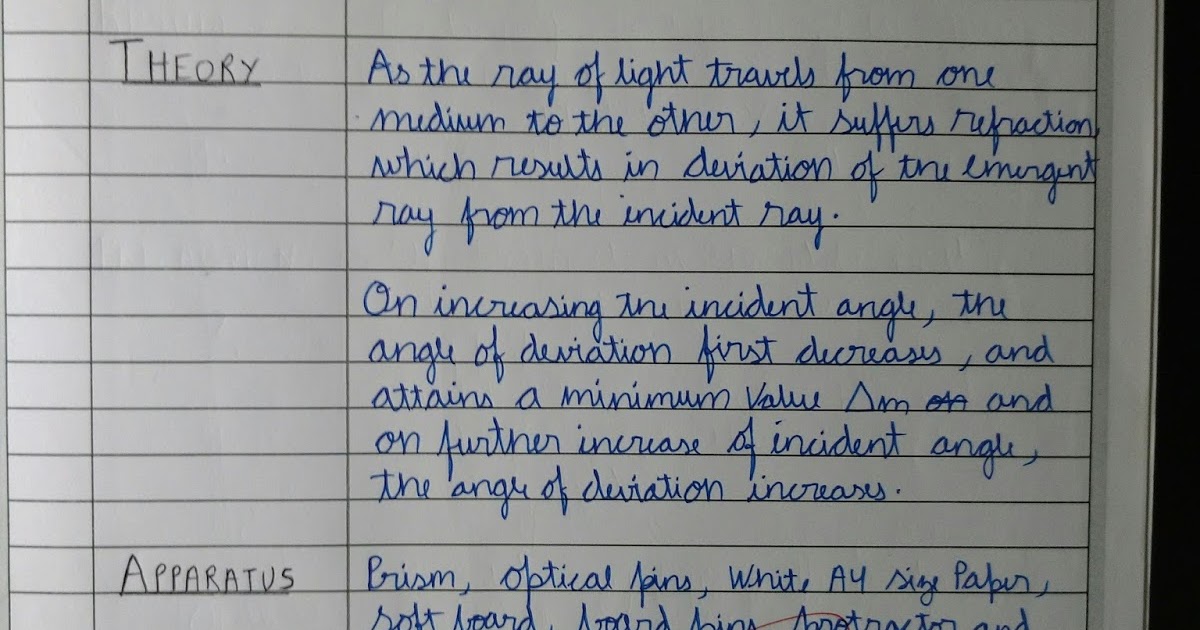 THEORY As the ray of light travels from one
medium to the other, it suffers refraction,
which results in deviation of the emergent
ray from the incident ray.
On increasing the incident angle, the
angle of deviation first decreases, and
attains a minimum value Δm and
on further increase of incident angle,
the angle of deviation increases.
APPARATUS Prism, Optical pins, White A4 size Paper,
soft board, board pins, protractor and